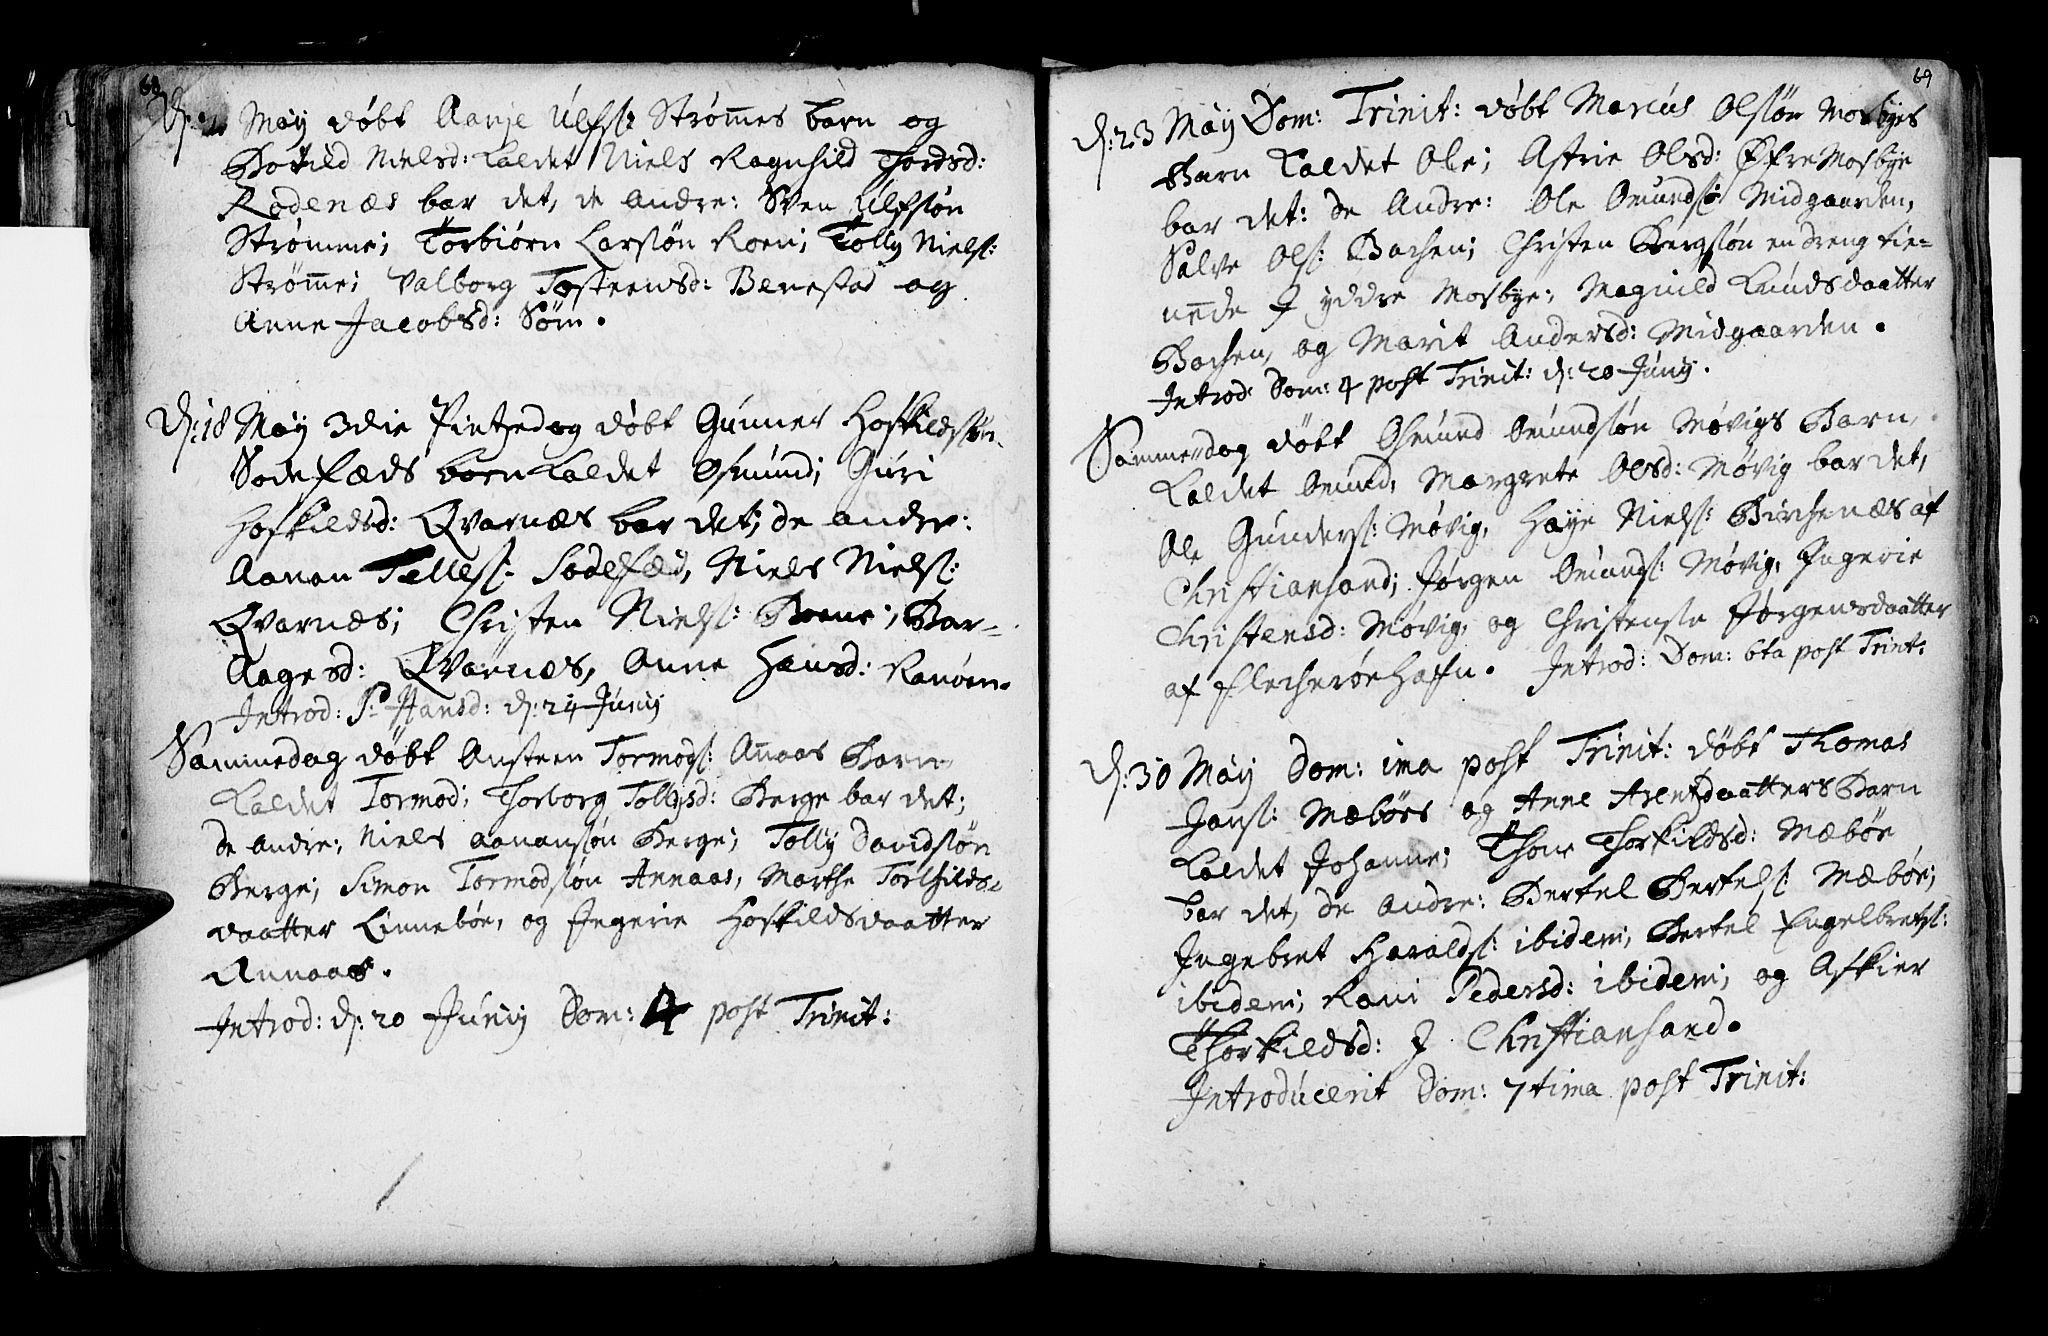 May døbt Aanje Ulfs: Strømes barn og
Botild Nielsd: kaldet Niels Ragnhild Tordsd:
Rodenæs bar det, de andre: Sven Ulfsøn
Strømme; Torbiørn Larssøn Roen; Tolly Niels:
Strøme; Valborg Tosteensd: Benestad og
Anne Jacobsd: Søm.
D: 18 May 3die Pintzedag døbt Gunner Hoskildsøn
Sodefæds barn kaldet Osmund; Guri
Hoskildsd: Qvarnæs bar det; de andre:
Aanon Telless: Sodefæd, Niels Niels:
Qvarnæs; Christen Niels: Boene; Bar-
Aagesd: Qvarnæs, Anne Hansd: Ranøen.
Introd: St Hansd: d: 24 Junij
Sammedag døbt Austeen Tormods: Anaas Barn
kaldet Tormod; Thorborg Tollysd: Berge bar det;
de andre; Niels Aanonsøn Berge; Tolly Davidsøn
Berge; Simon Tormodsøn Annaas, Marthe Torkilds-
daatter Linnebøe, og Ingerie Hoskildsdaatter
Annaas.
Introd: d: 20 Junij Dom: 4 post Trinit:
69
D: 23 May Dom: Trinit: døbt Marcus Olsøn Mosbyes
Barn kaldet Ole; Astrie Olsd: Øfre Mosbye
bar det: de Andre: Ole Omunds: Midgaarden,
Salve Ols: Bachen; Christen Bergsøn en dreng tie-
nede J yddre Mosbye; Magnild Knudsdaatter
Bachen, og Marit Andersd: Midgaarden.
Introd: Dom: 4 post Trinit: d: 20 Junij.
Sammedag døbt Osmund Omundsøn Møvigs Barn,
kaldet Omund, Margrete Olsd: Møvig bar det,
Ole Gunders: Møvig, Haye Niels: Birchenæs af
Christiansand; Jørgen Omunds: Møvig, Ingerie
Christensd: Møvig, og Christense Jørgensdaatter
af Flecherøe Haffn. Introd: Dom: 6ta post Trinit:
D: 30 May Dom: 1ma post Trinit: døbt Thomas
Jans: Mæbøes og Anne Arentzdaatters Barn
kaldet Johanne; Thore Thorkildsd: Mæbøe
bar det, de Andre: Bertel Bertels: Mæbøe;
Ingebret Haralds: ibidem; Bertel Engelbrets:
ibidem; Rani Pedersd: ibidem; og Askier
Thorkildsd: J Christiansand.
Introducerit Dom: 7tima post Trinit: